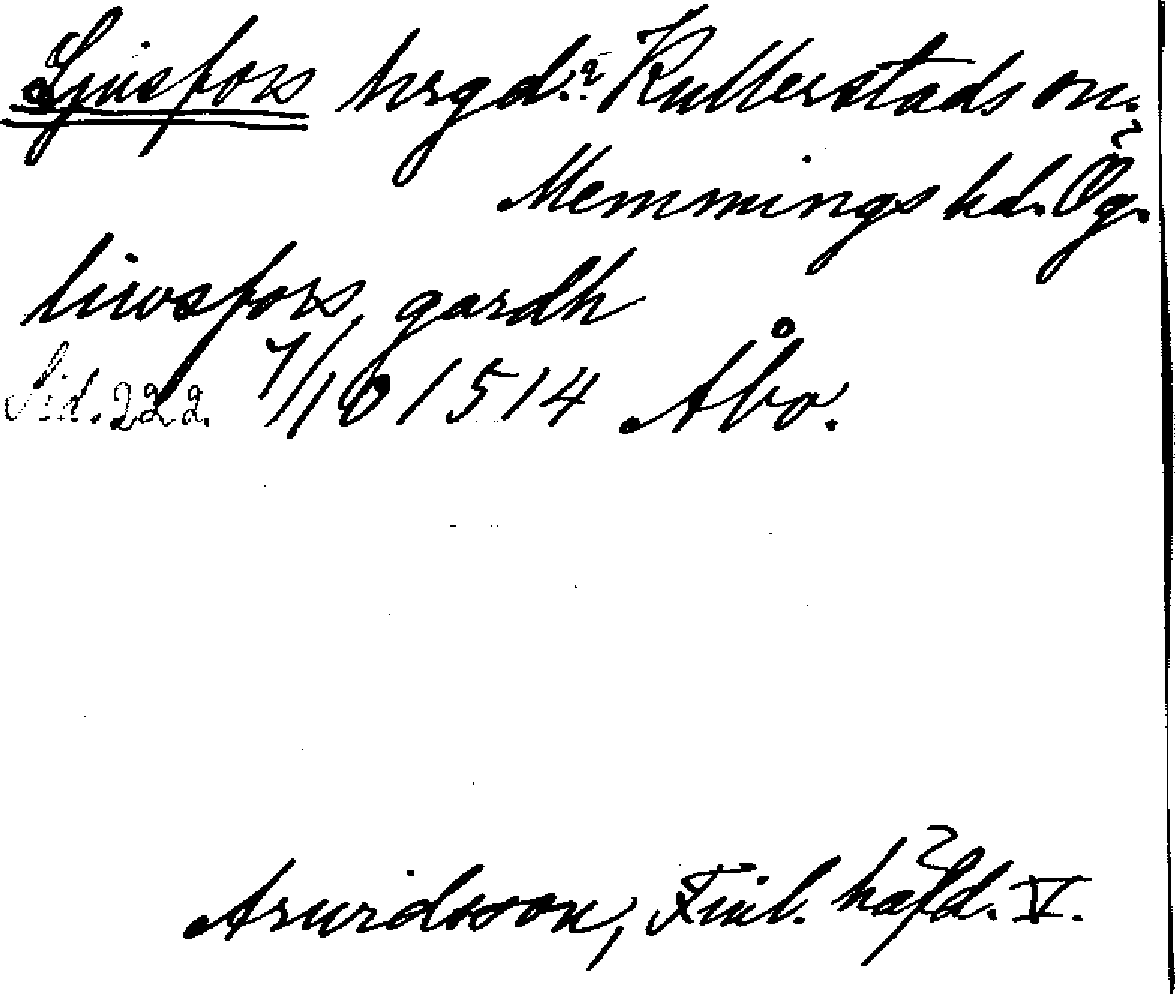 Ljusfors hrgd.? Kullerstads sn.
Memmings hd. Ög.
liwsfors, gardh
Sid. 222. 7/10 1514 Åbo.
Arwidsson, Finl. häfd. V.